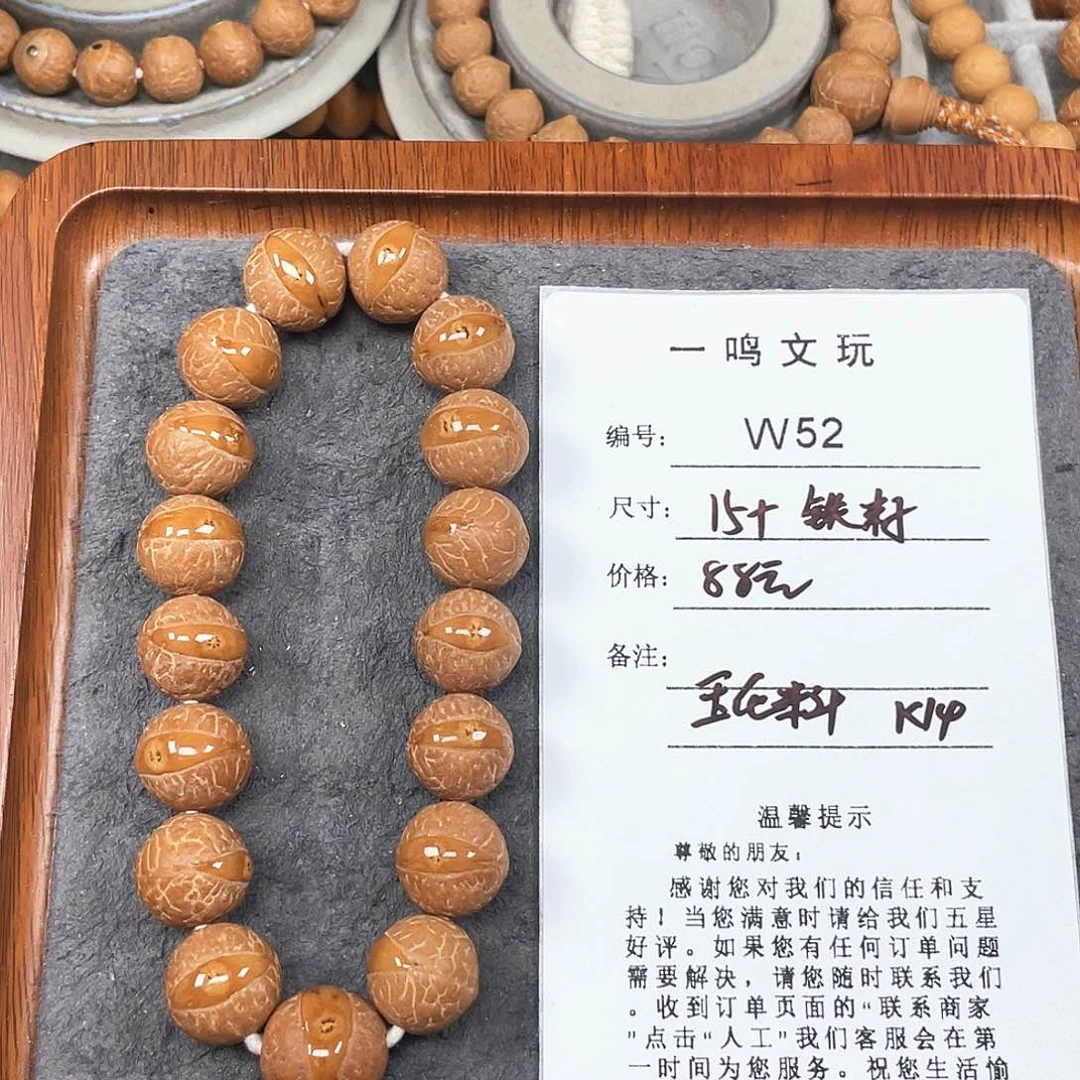 一鸣文玩
编号： W52
尺寸： 15+ 铁籽
价格： 88元
备注：
玉化料 K14
温馨提示
尊敬的朋友：
感谢您对我们的信任和支
持！当您满意时请给我们五星
好评。如果您有任何订单问题
需要解决，请您随时联系我们
。收到订单页面的“联系商家
”点击“人工”我们客服会在第
一时间为您服务。祝您生活愉